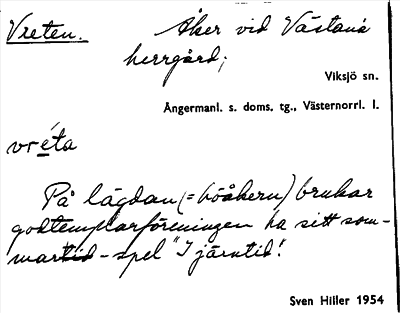 Vreten.
Åker vid Västanå
herrgård;
Viksjö sn.
Ångermanl. s. doms. tg., Västernorrl. l.
vréta
På lägdan (= höåkern) brukar
godtemplarföreningen ha sitt som-
martid-spel "I järntid!
Sven Hiller 1954